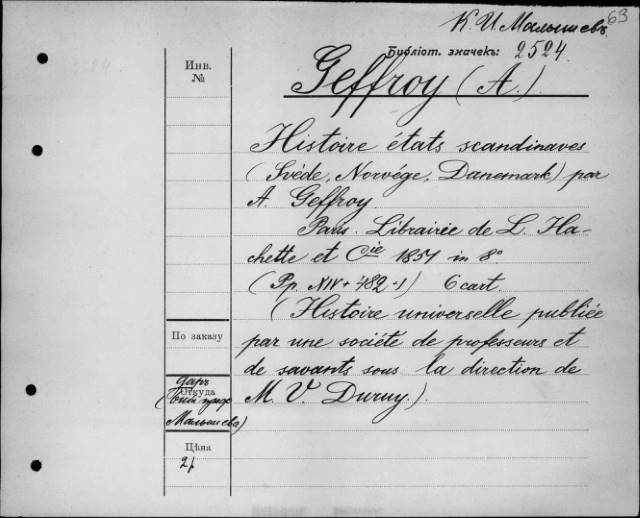 63
К. И Малышевъ.
Библіот. значекъ: 2524.
Инв.
№
Geffroy (A.)
Histoire états scandinaves
(Svède, Norvége, Danemark) par
A. Geffroy.
Paris. Librairée de L. Ha-
chette et Cie 1851 in 8°
(Pp. XIV + 482 + 1) 6 cart.
(Histoire universelle publiée
par une société de professeurs et
de savants sous la direction de
M. V. Duruy.)
По заказу
даръ
Откуда
Малышева)
Цѣна
2р